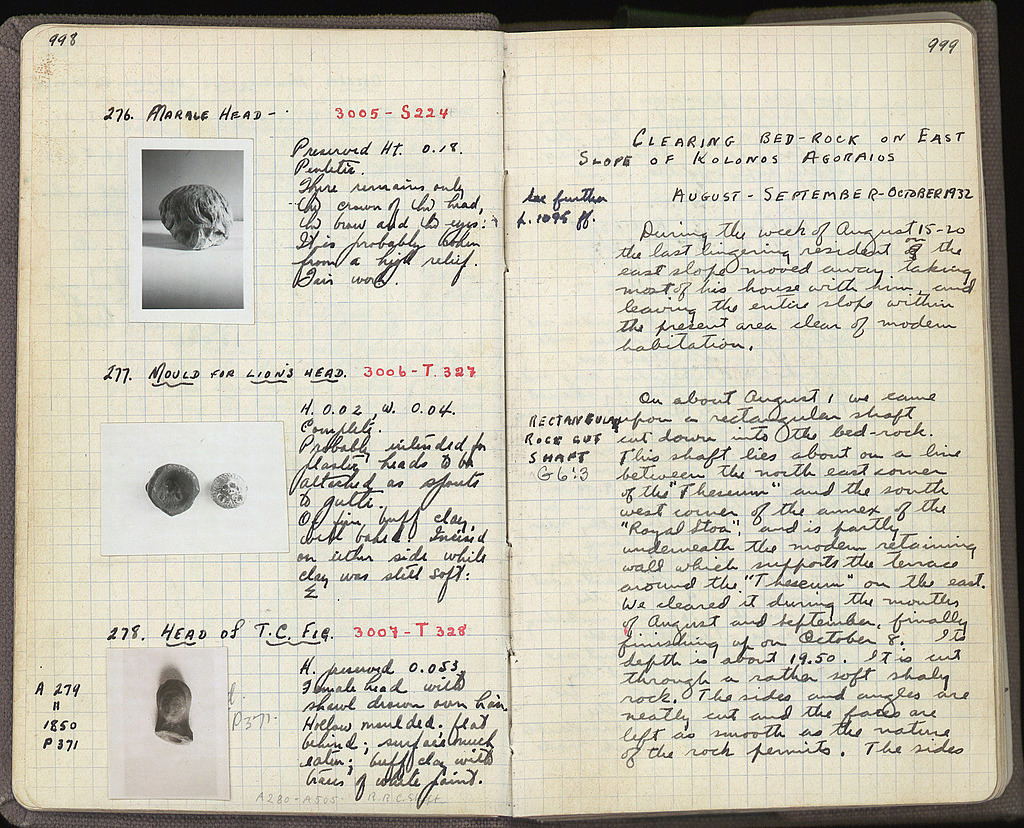 998
276. MARBLE HEAD - 3005 - S224
Preserved Ht. 0.18.
Pentelic.
There remains only
the crown of the head,
the brow and the eyes.
It is probably broken
from a high relief.
Fair work.
277. MOULD FOR LION'S HEAD. 3006 - T. 327
H. 0.02, W. 0.04.
Complete.
Probably intended for
plastic heads to be
attached as spouts
to gutti.
Of fine, buff clay,
well baked. Incised
on either side while
clay was still soft:
Σ
278. HEAD OF T.C. FIG. 3007 - T 328
H. preserved 0.053.
Female head with
shawl drawn over hair
Hollow moulded; flat
behind; surface much
eaten; buff clay with
traces of white paint.
A 279
H
1850
P 371
P371
A280 - A505
999
CLEARING BED-ROCK ON EAST
SLOPE OF KOLONOS AGORAIOS
AUGUST - SEPTEMBER - OCTOBER 1932
See further
p. 1098 ff.
During the week of August 15-20
the last lingering resident on the
east slope moved away taking
most of his house with him, and
leaving the entire slope within
the present area clear of modern
habitation.
RECTANGULAR
ROCK CUT
SHAFT
G 6:3
On about August 1 we came
upon a rectangular shaft
cut down into the bed-rock.
This shaft lies about on a line
between the north east corner
of the "Theseum" and the south
west corner of the annex of the
"Royal Stoa", and is partly
underneath the modern retaining
wall which supports the terrace
around the "Theseum" on the east.
We cleared it during the months
of August and September, finally
finishing up on October 8. Its
depth is about 19.50. It is cut
through a rather soft shaly
rock. The sides and angles are
neatly cut and the faces are
left as smooth as the nature
of the rock permits. The sides